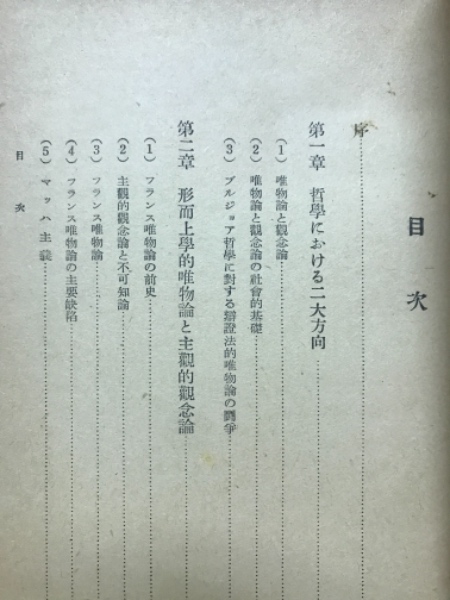 目次
序
第一章 哲學における二大方向
(1) 唯物論と觀念論
(2) 唯物論と觀念論の社會的基礎
(3) ブルジョア哲學に對する辯證法的唯物論の鬪爭
第二章 形而上學的唯物論と主觀的觀念論
(1) フランス唯物論の前史
(2) 主觀的觀念論と不可知論
(3) フランス唯物論
(4) フランス唯物論の主要缺陷
(5) マッハ主義
目次